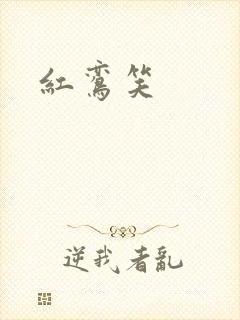 紅鸞笑
逆我者亂